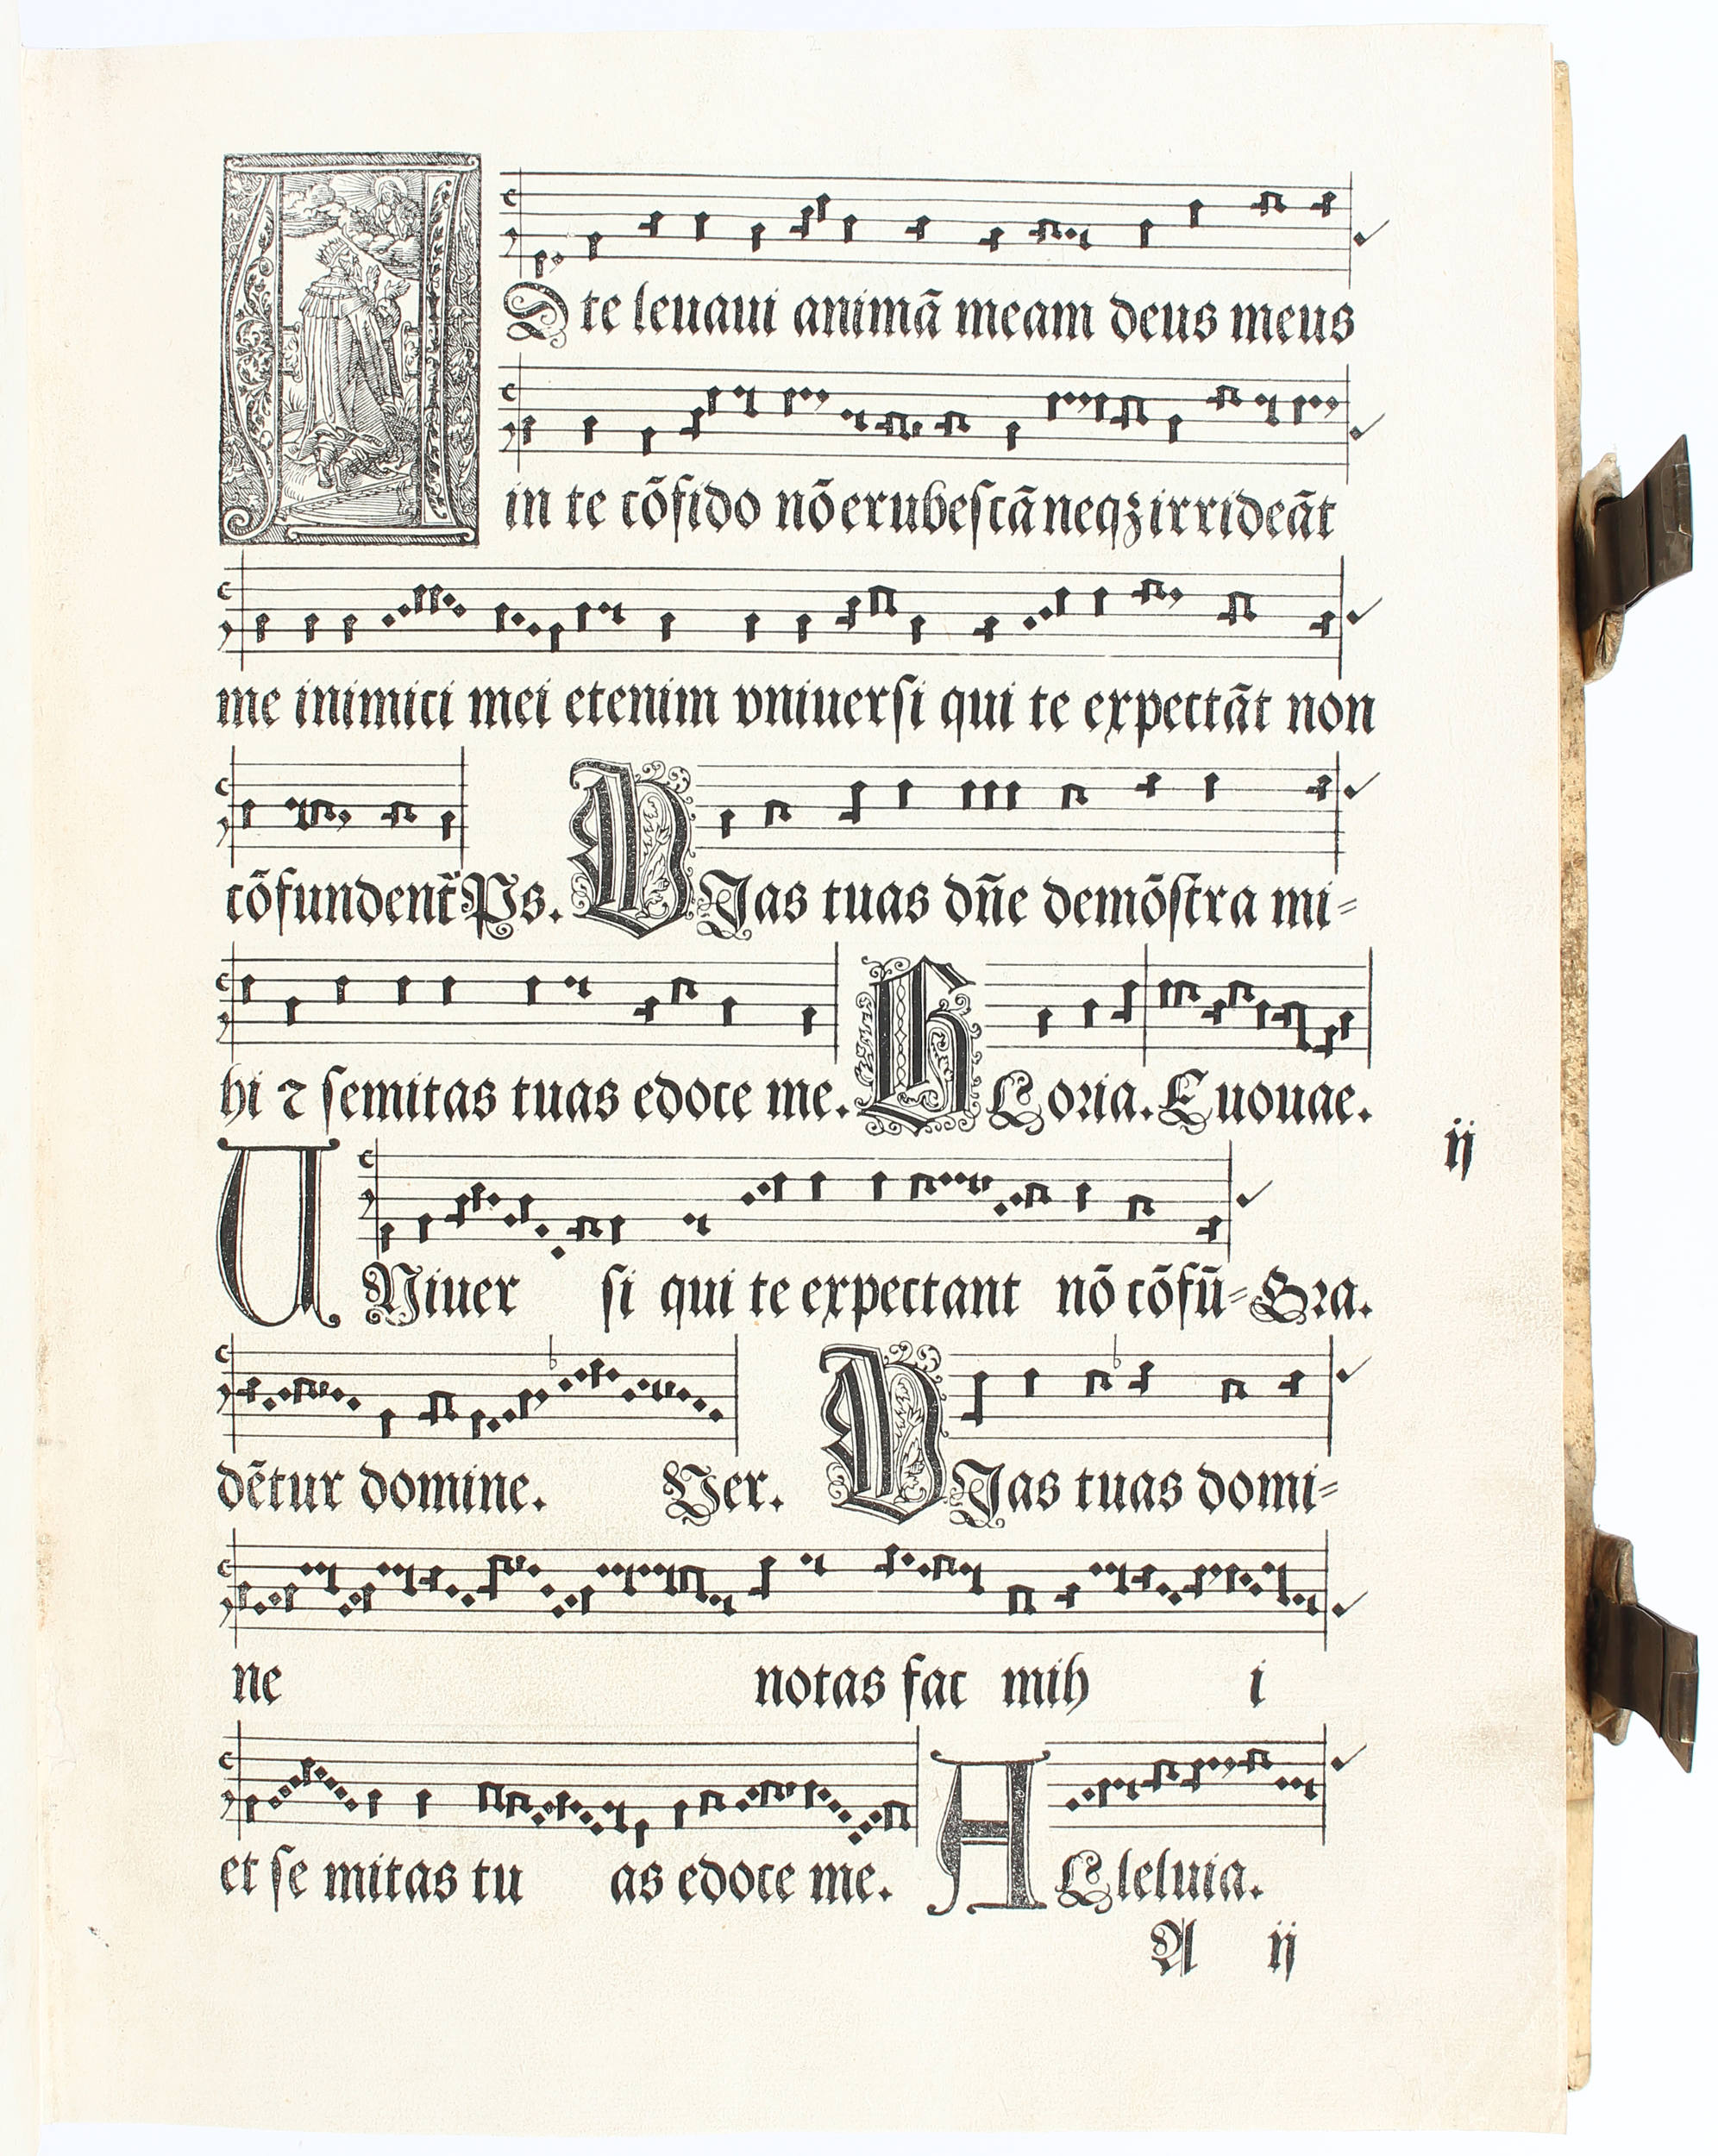 AD te leuaui animā meam deus meus
in te cōfido nō erubeſcā neqꝫ irrideāt
me inimici mei etenim vniuerſi qui te expectāt non
cōfundent᷑ Ps. VIas tuas dn̄e demōſtra mi⸗
hi ⁊ ſemitas tuas edoce me. GLoꝛia. Euouae.
ij
VNiuer ſi qui te expectant nō cōfū⸗ Gꝛa.
dētur domine. Ver. VIas tuas domi⸗
ne notas fac mih i
et ſe mitas tu as edoce me. ALleluia.
A ij